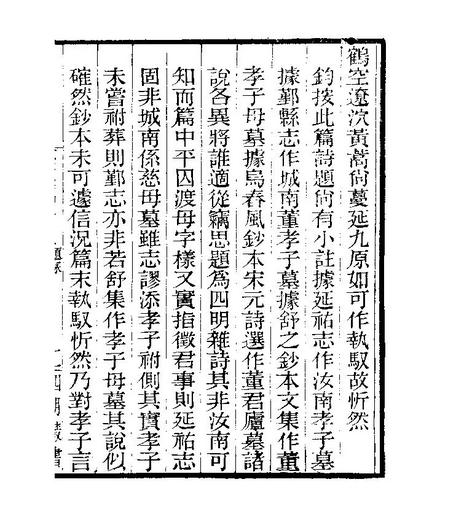 鶴空遼泬黃蒿尙蔓延九原如可作執馭故忻然
鈞按此篇詩題尙有小註據延祐志作汝南孝子墓
據鄞縣志作城南董孝子墓據舒之鈔本文集作董
孝子母墓據烏春風鈔本宋元詩選作董君廬墓諸
說各異將誰適從竊思題爲四明雜詩其非汝南可
知而篇中平囚渡母字樣又實指徵君事則延祐志
固非城南係慈母墓雖志謬添孝子祔側其實孝子
未嘗祔葬則鄞志亦非若舒集作孝子母墓其說似
確然鈔本未可遽信況篇末執馭忻然乃對孝子言
四明叢書